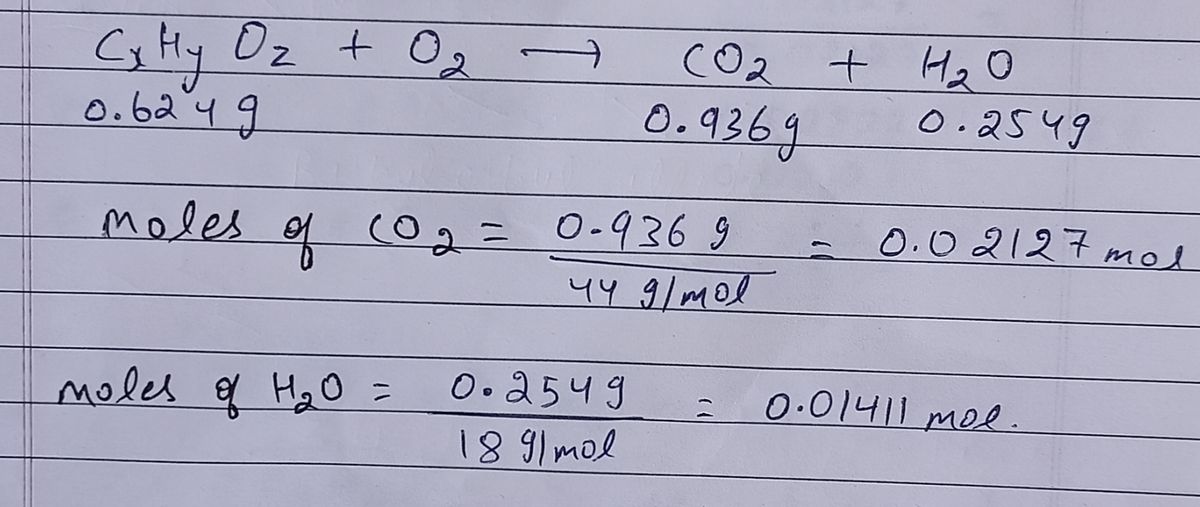 CxHyOz + O2 → CO2 + H2O
0.624g 0.936g 0.254g
moles of CO2 = 0.936 g / 44 g/mol = 0.02127 mol
moles of H2O = 0.254g / 18 g/mol = 0.01411 mol.